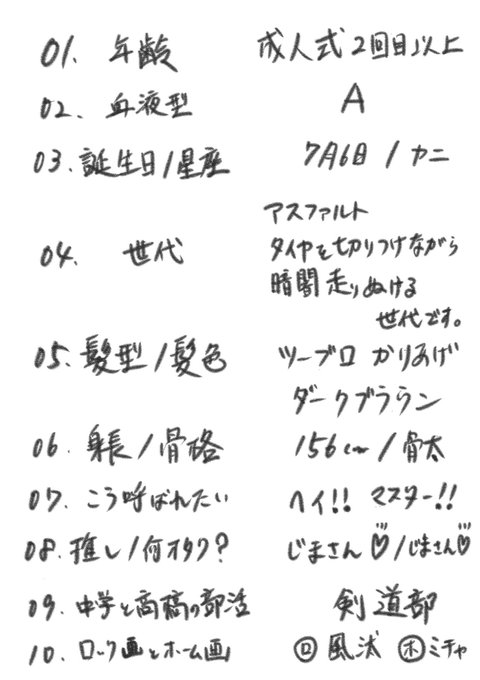 01. 年齢 成人式2回目以上
02. 血液型 A
03. 誕生日/星座 7月6日 / カニ
アスファルト
04. 世代 タイヤを切りつけながら
暗闇走りぬける
世代です。
05. 髪型/髪色 ツーブロ かりあげ
ダークブラウン
06. 身長/骨格 156cm/骨太
07. こう呼ばれたい ヘイ!! マスター!!
08. 推し/何オタク? じまさん♡/じまさん♡
09. 中学と高校の部活 剣道部
10. ロック画とホーム画 ロ 風 ホ ミチャ